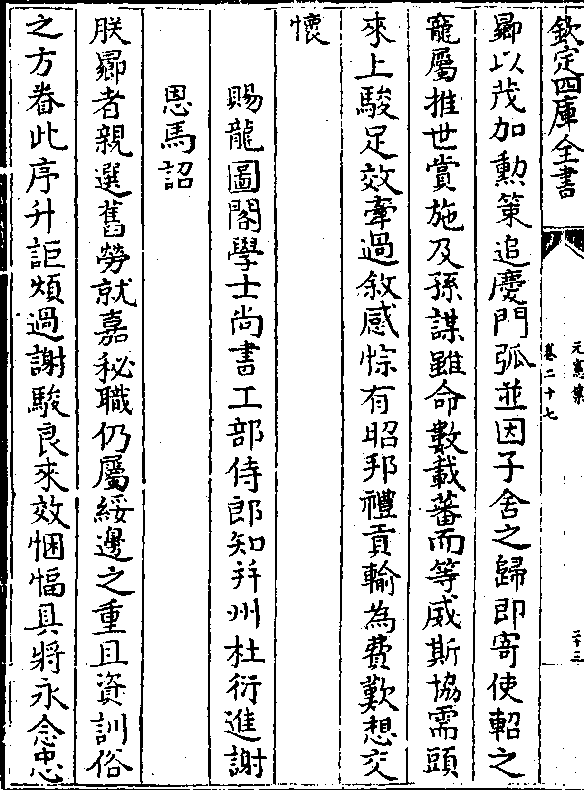 欽定四庫全書
元憲集
卷二十七
二十三
朂以茂加勲策追慶門弧並因子舍之歸即寄使軺之
寵屬推世賞施及孫謀雖命數載蕃而等威斯協需頭
來上駿足效牽過敘感悰有昭邦禮貢輸為費歎想交
懷
賜龍圖閣學士尚書工部侍郎知并州杜衍進謝
恩馬詔
朕曏者親選舊勞就嘉秘職仍屬綏邊之重且資訓俗
之方眷此序升詎煩過謝駿良來效悃愊具將永念忠